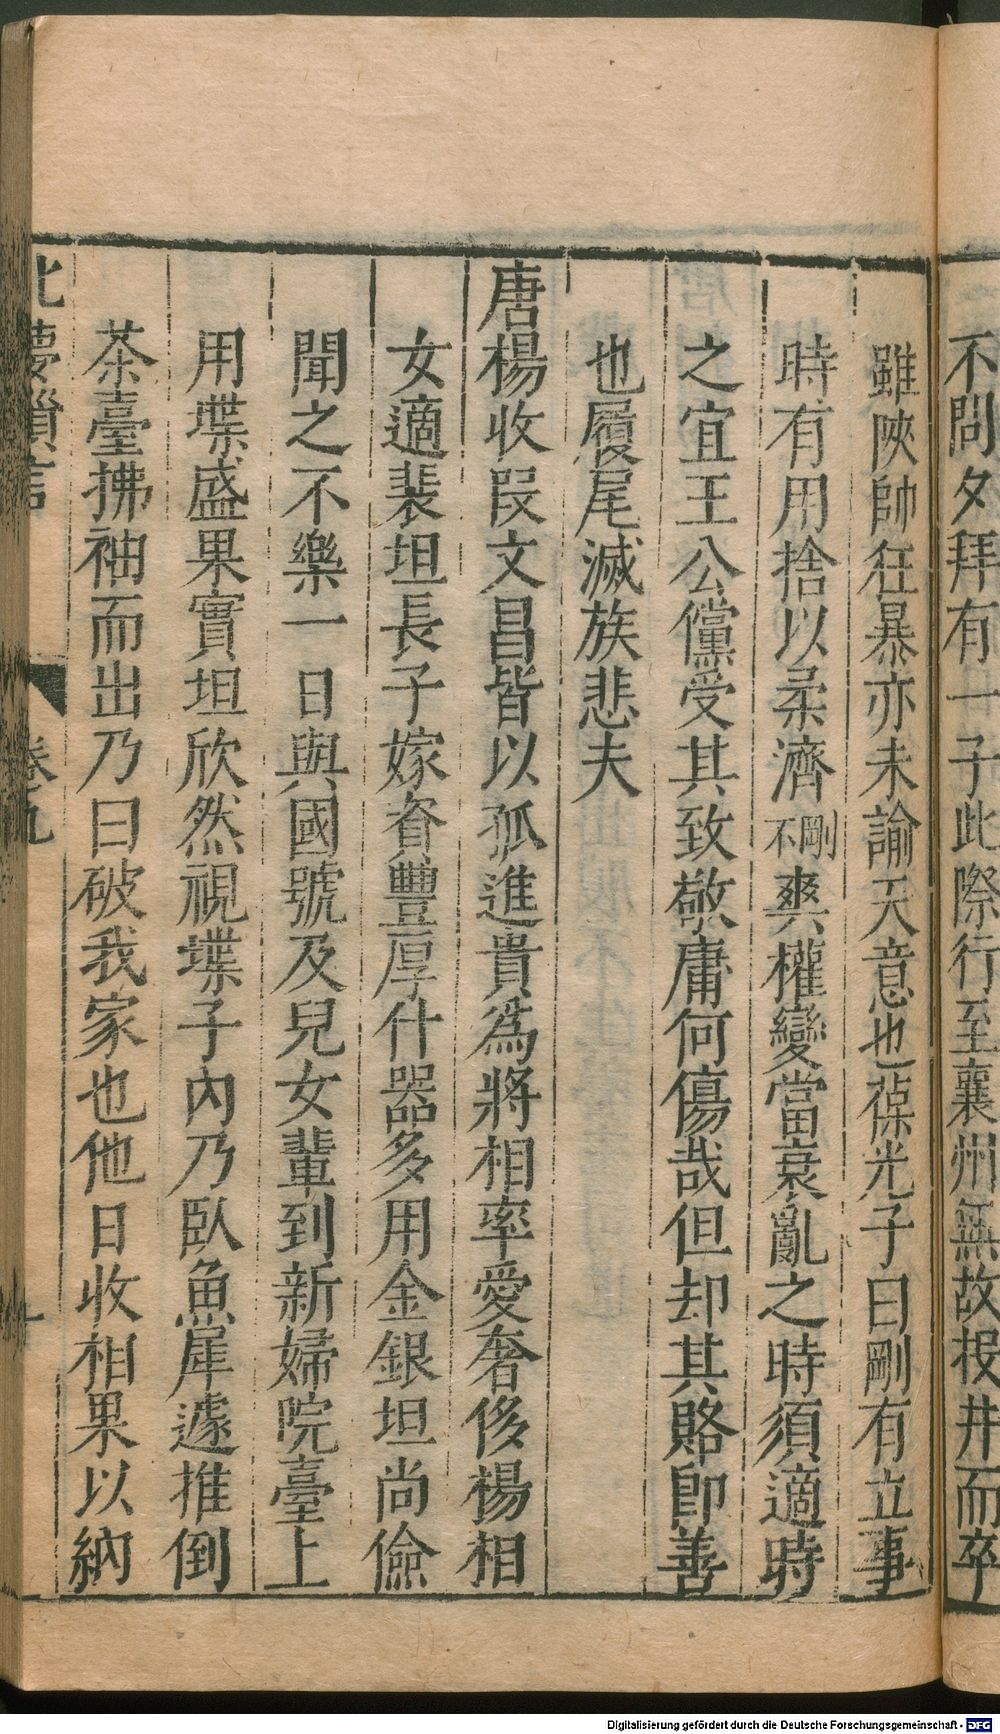 不問夕拜有一子此際行至襄州無故投井而卒
雖陝帥狂暴亦未諭天意也葆光子曰剛有立事
時有用捨以柔濟剛不爽權變當衰亂之時須適時
之宜王公儻受其致敬庸何傷哉但却其賂卽善
也履尾滅族悲夫
唐楊收叚文昌皆以孤進貴爲將相率愛奢侈楊相
女適裴坦長子嫁資豐厚什器多用金銀坦尚儉
聞之不樂一日與國號及兒女輩到新婦院臺上
用堞盛果實坦欣然視堞子內乃臥魚犀遽推倒
茶臺拂袖而出乃曰破我家也他日收相果以納
北夢瑣言 卷九
Digitalisierung gefördert durch die Deutsche Forschungsgemeinschaft - DFG